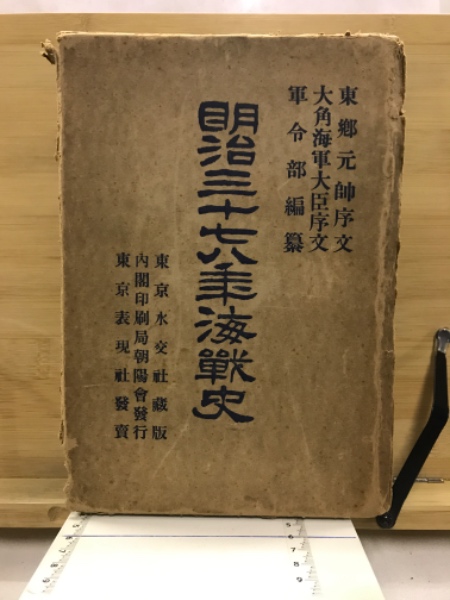 東鄉元帥序文
大角海軍大臣序文
軍令部編纂
明治三十七八年海戰史
東京水交社藏版
內閣印刷局朝陽會發行
東京表現社發賣
5
6
7
8
9